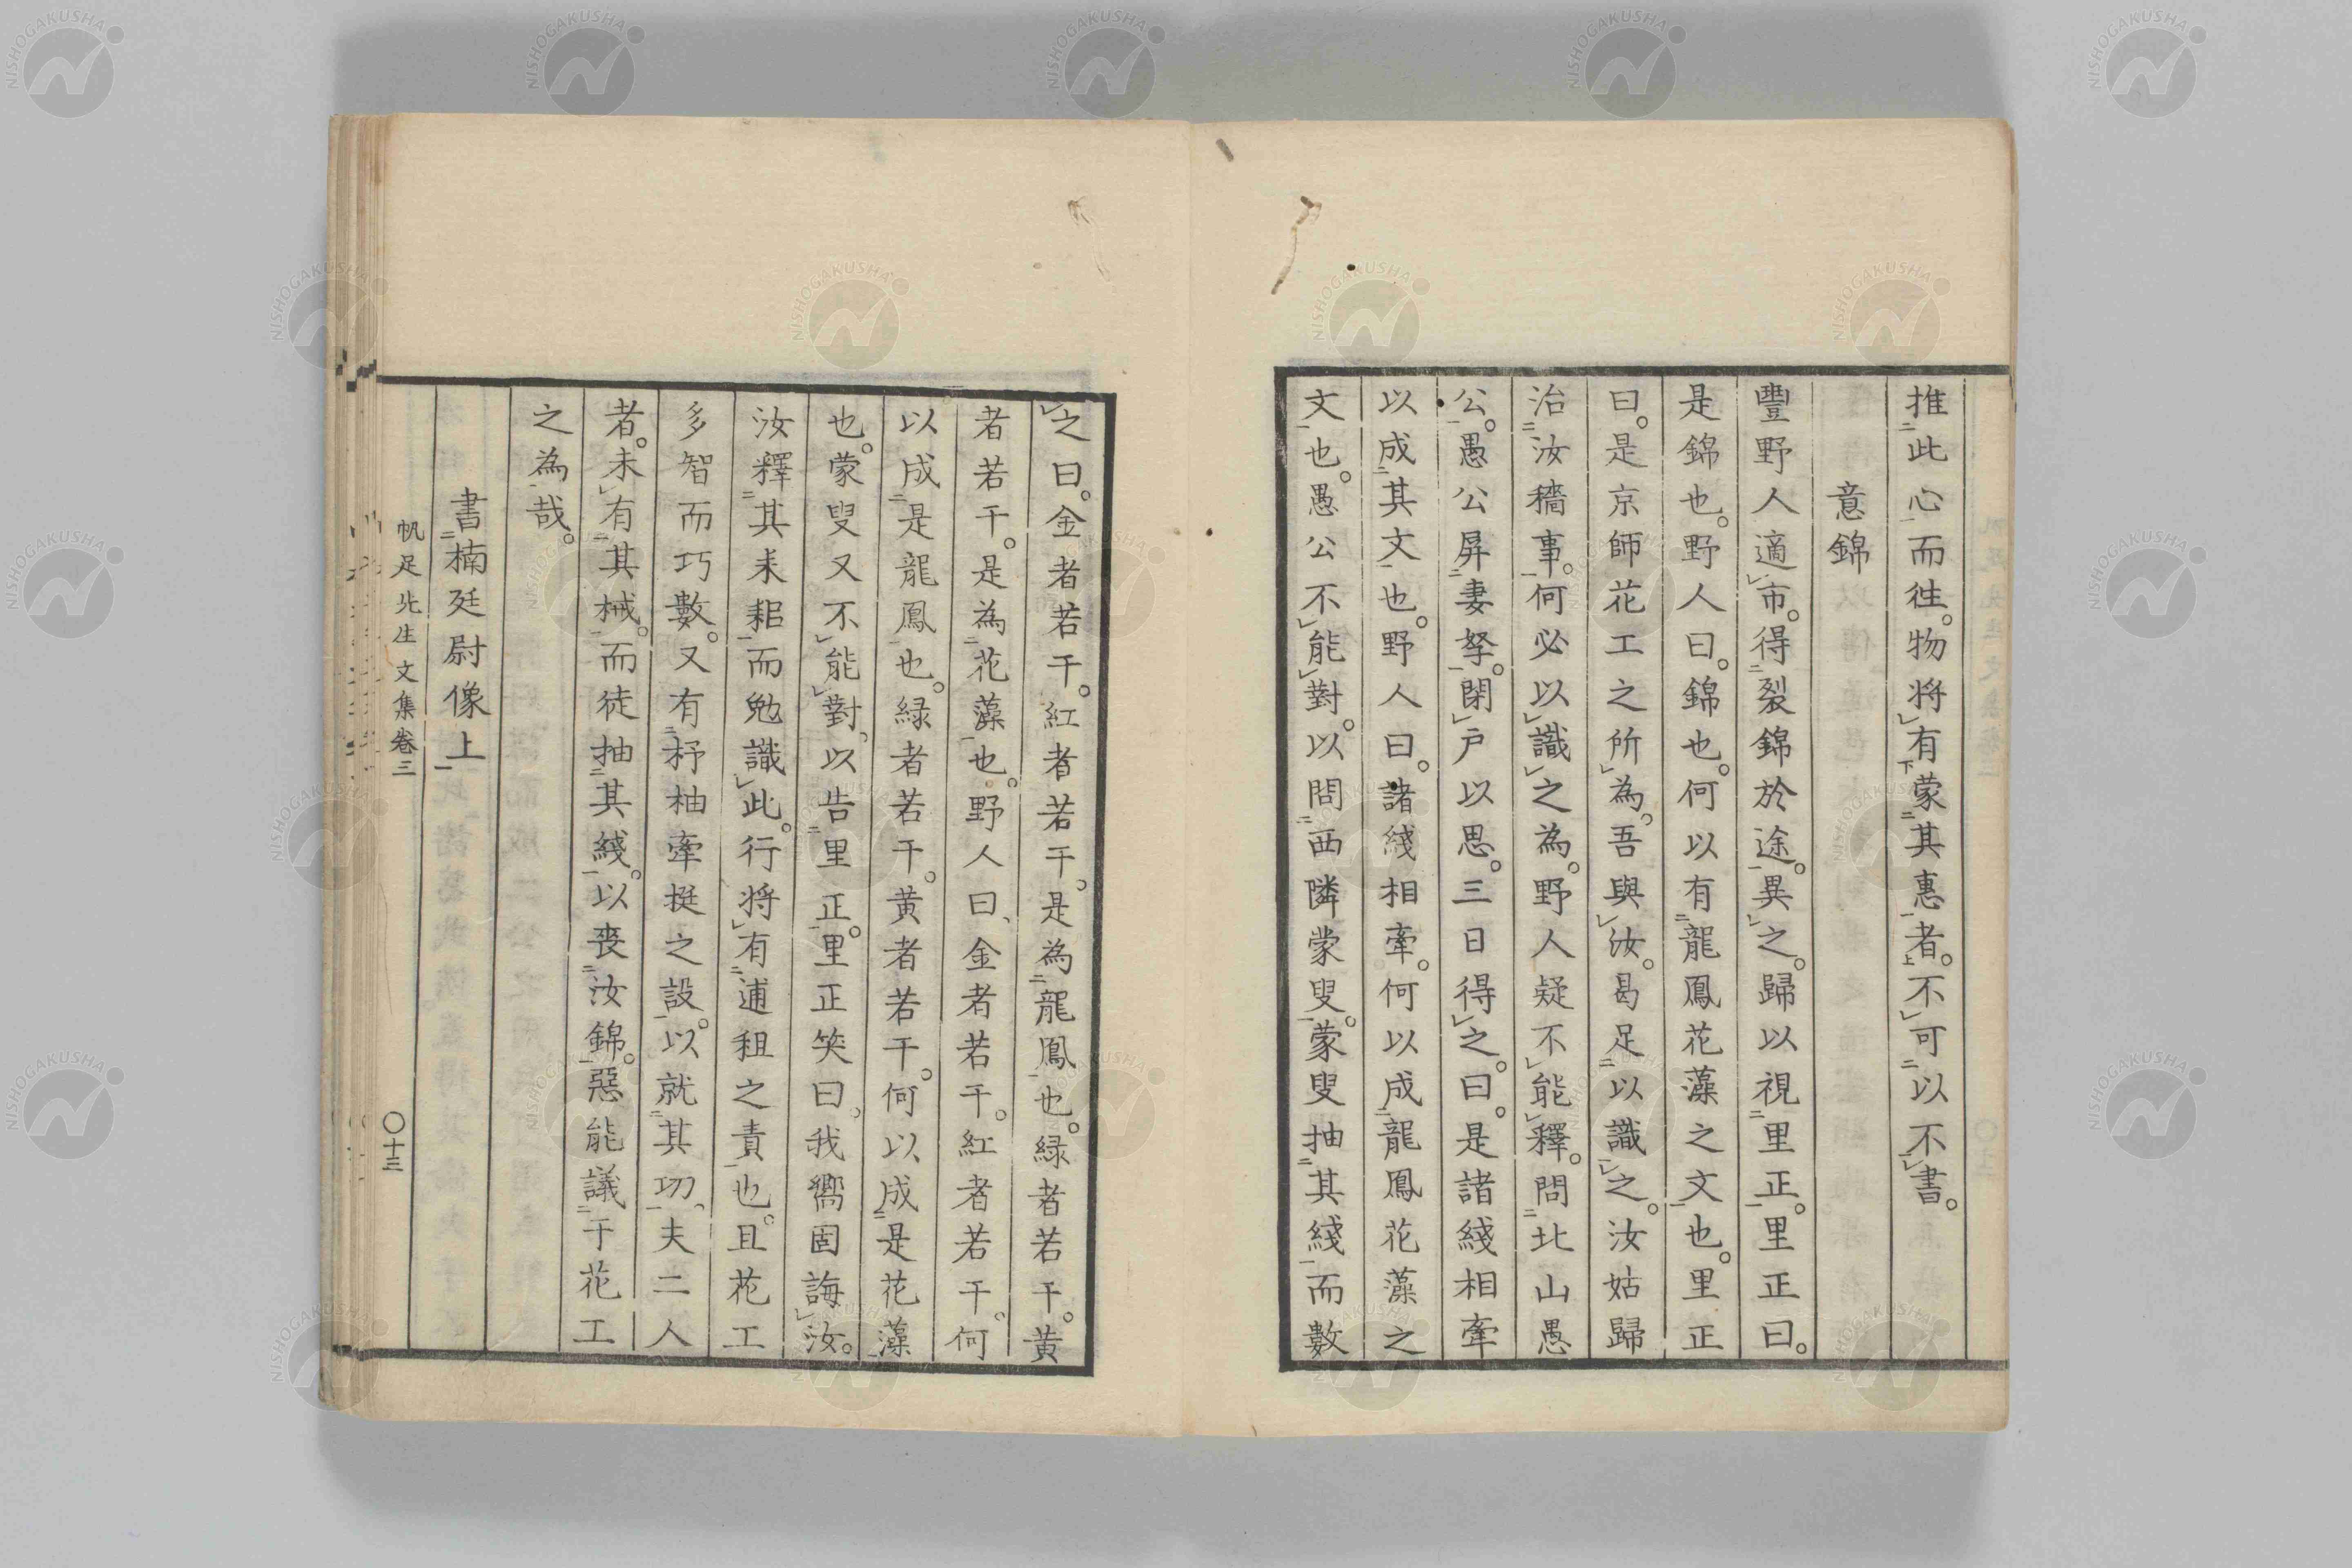 推此心而往。物将有蒙其惠者。不可以不書。
意錦
豐野人適市。得裂錦於途。異之。歸以視里正。里正曰。
是錦也。野人曰。錦也。何以有龍鳳花藻之文也。里正
曰。是京師花工之所為。吾與汝。曷足以識之。汝姑歸
治汝穡事。何必以識之為。野人疑不能釋。問北山愚
公。愚公屏妻孥。閉戸以思。三日得之。曰。是諸綫相牽
以成其文也。野人曰。諸綫相牽。何以成龍鳳花藻之
文也。愚公不能對。以問西隣蒙叟。蒙叟抽其綫而數
之曰。金者若干。紅者若干。是為龍鳳也。緑者若干。黄
者若干。是為花藻也。野人曰、金者若干。紅者若干。何
以成是龍鳳也。緑者若干。黄者若干。何以成是花藻
也。蒙叟又不能對、以告里正。里正笑曰、我嚮固誨汝。
汝釋其耒耜而勉識此。行将有逋租之責也。且花工
多智而巧數。又有杼柚牽挺之設。以就其功、夫二人
者。未有其械。而徒抽其綫。以喪汝錦。惡能議于花工
之為哉。
書楠廷尉像上
帆足先生文集卷三
〇十三
NISHOGAKUSHA